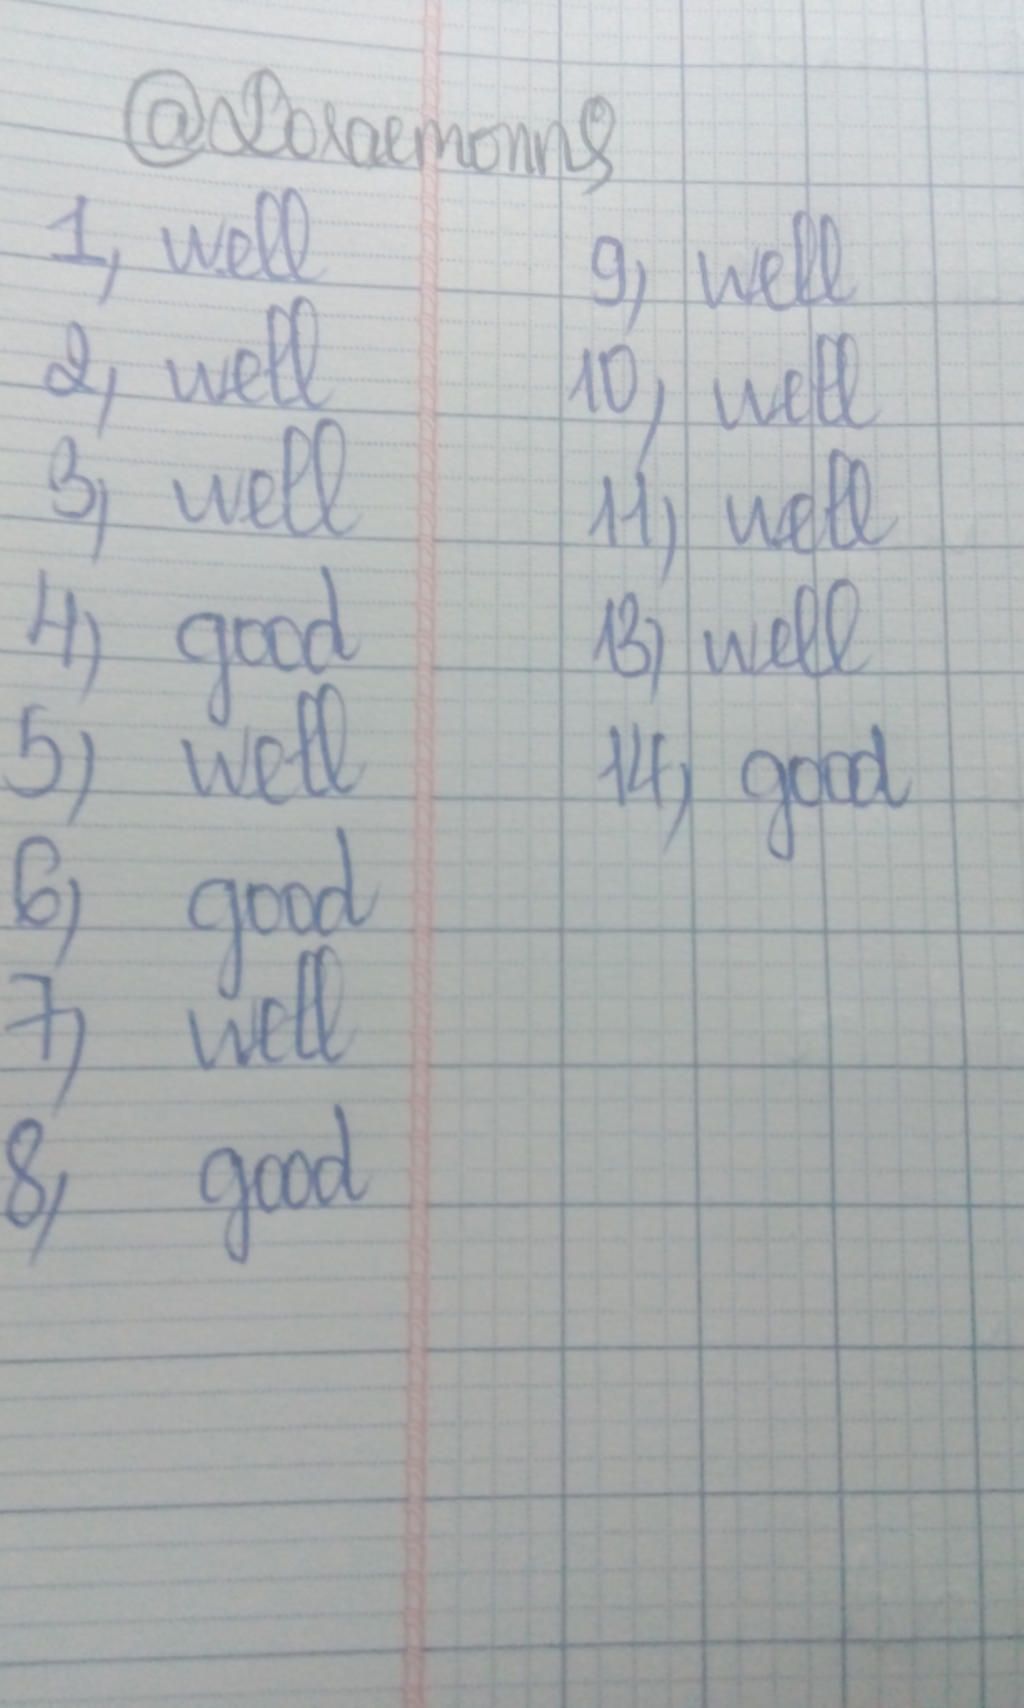 @Doraemonng
1, well
2, well
3, well
4, good
5, well
6, good
7, well
8, good
9, well
10, well
11, well
13, well
14, good